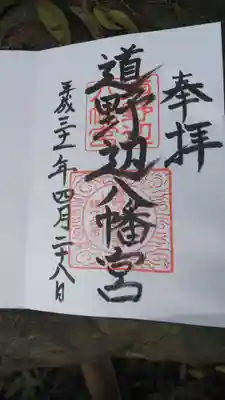 奉拝
道野辺八幡宮
平成三十一年四月二十八日